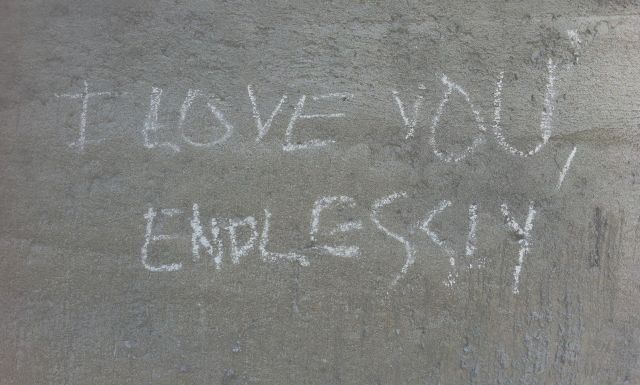 I LOVE YOU,
ENDLESSLY